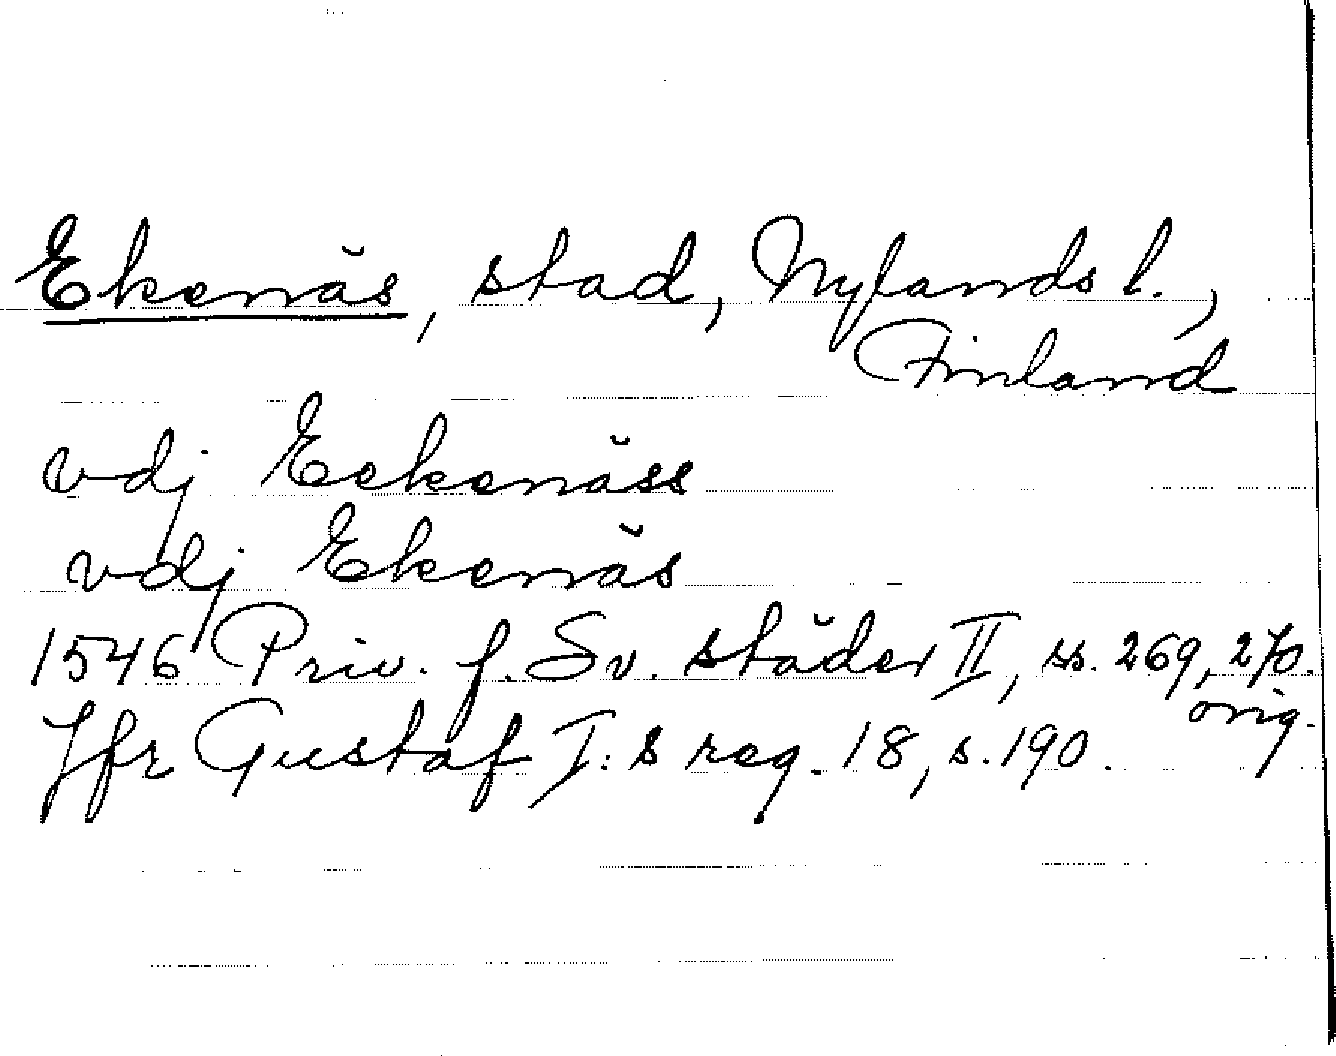 Ekenäs, stad, Nylands l.,
Finland
vdj Eekenäss
vdj Ekenäs
1546 Priv. f. Sv. städer II, ss. 269, 270.
orig.
Jfr Gustaf I:s reg. 18, s. 190.